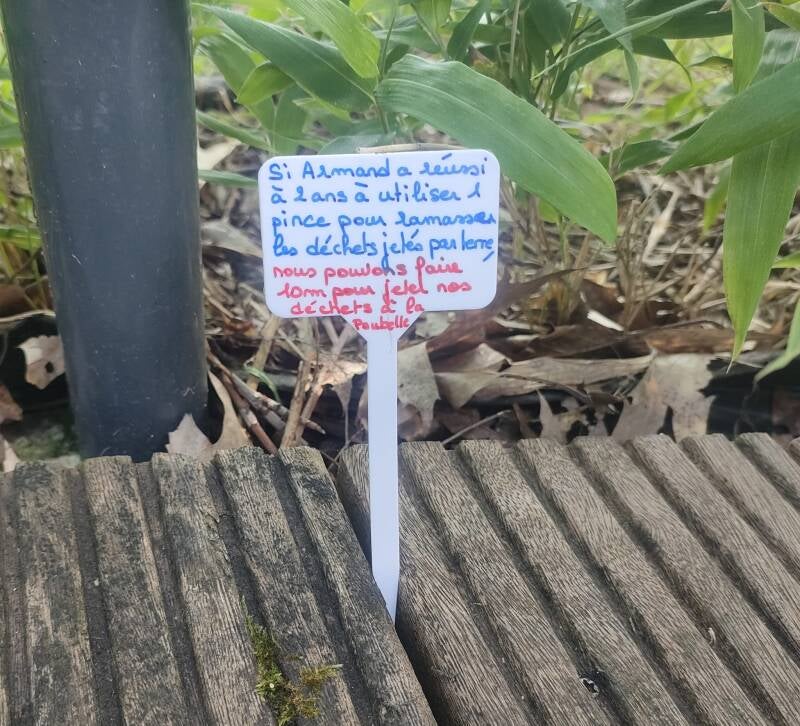 Si Armand a réussi
à 2 ans à utiliser 1
pince pour ramasser
les déchets jetés par terre,
nous pouvons faire
10m pour jeter nos
déchets à la
Poubelle